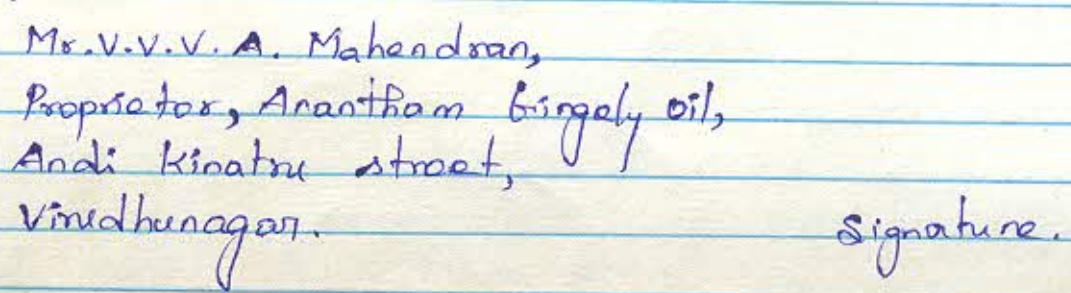 Mr.V.V.V.A. Mahendran,
Proprietor, Anantham Gingely oil,
Andi Kinatru street,
Virudhunagar. Signature.